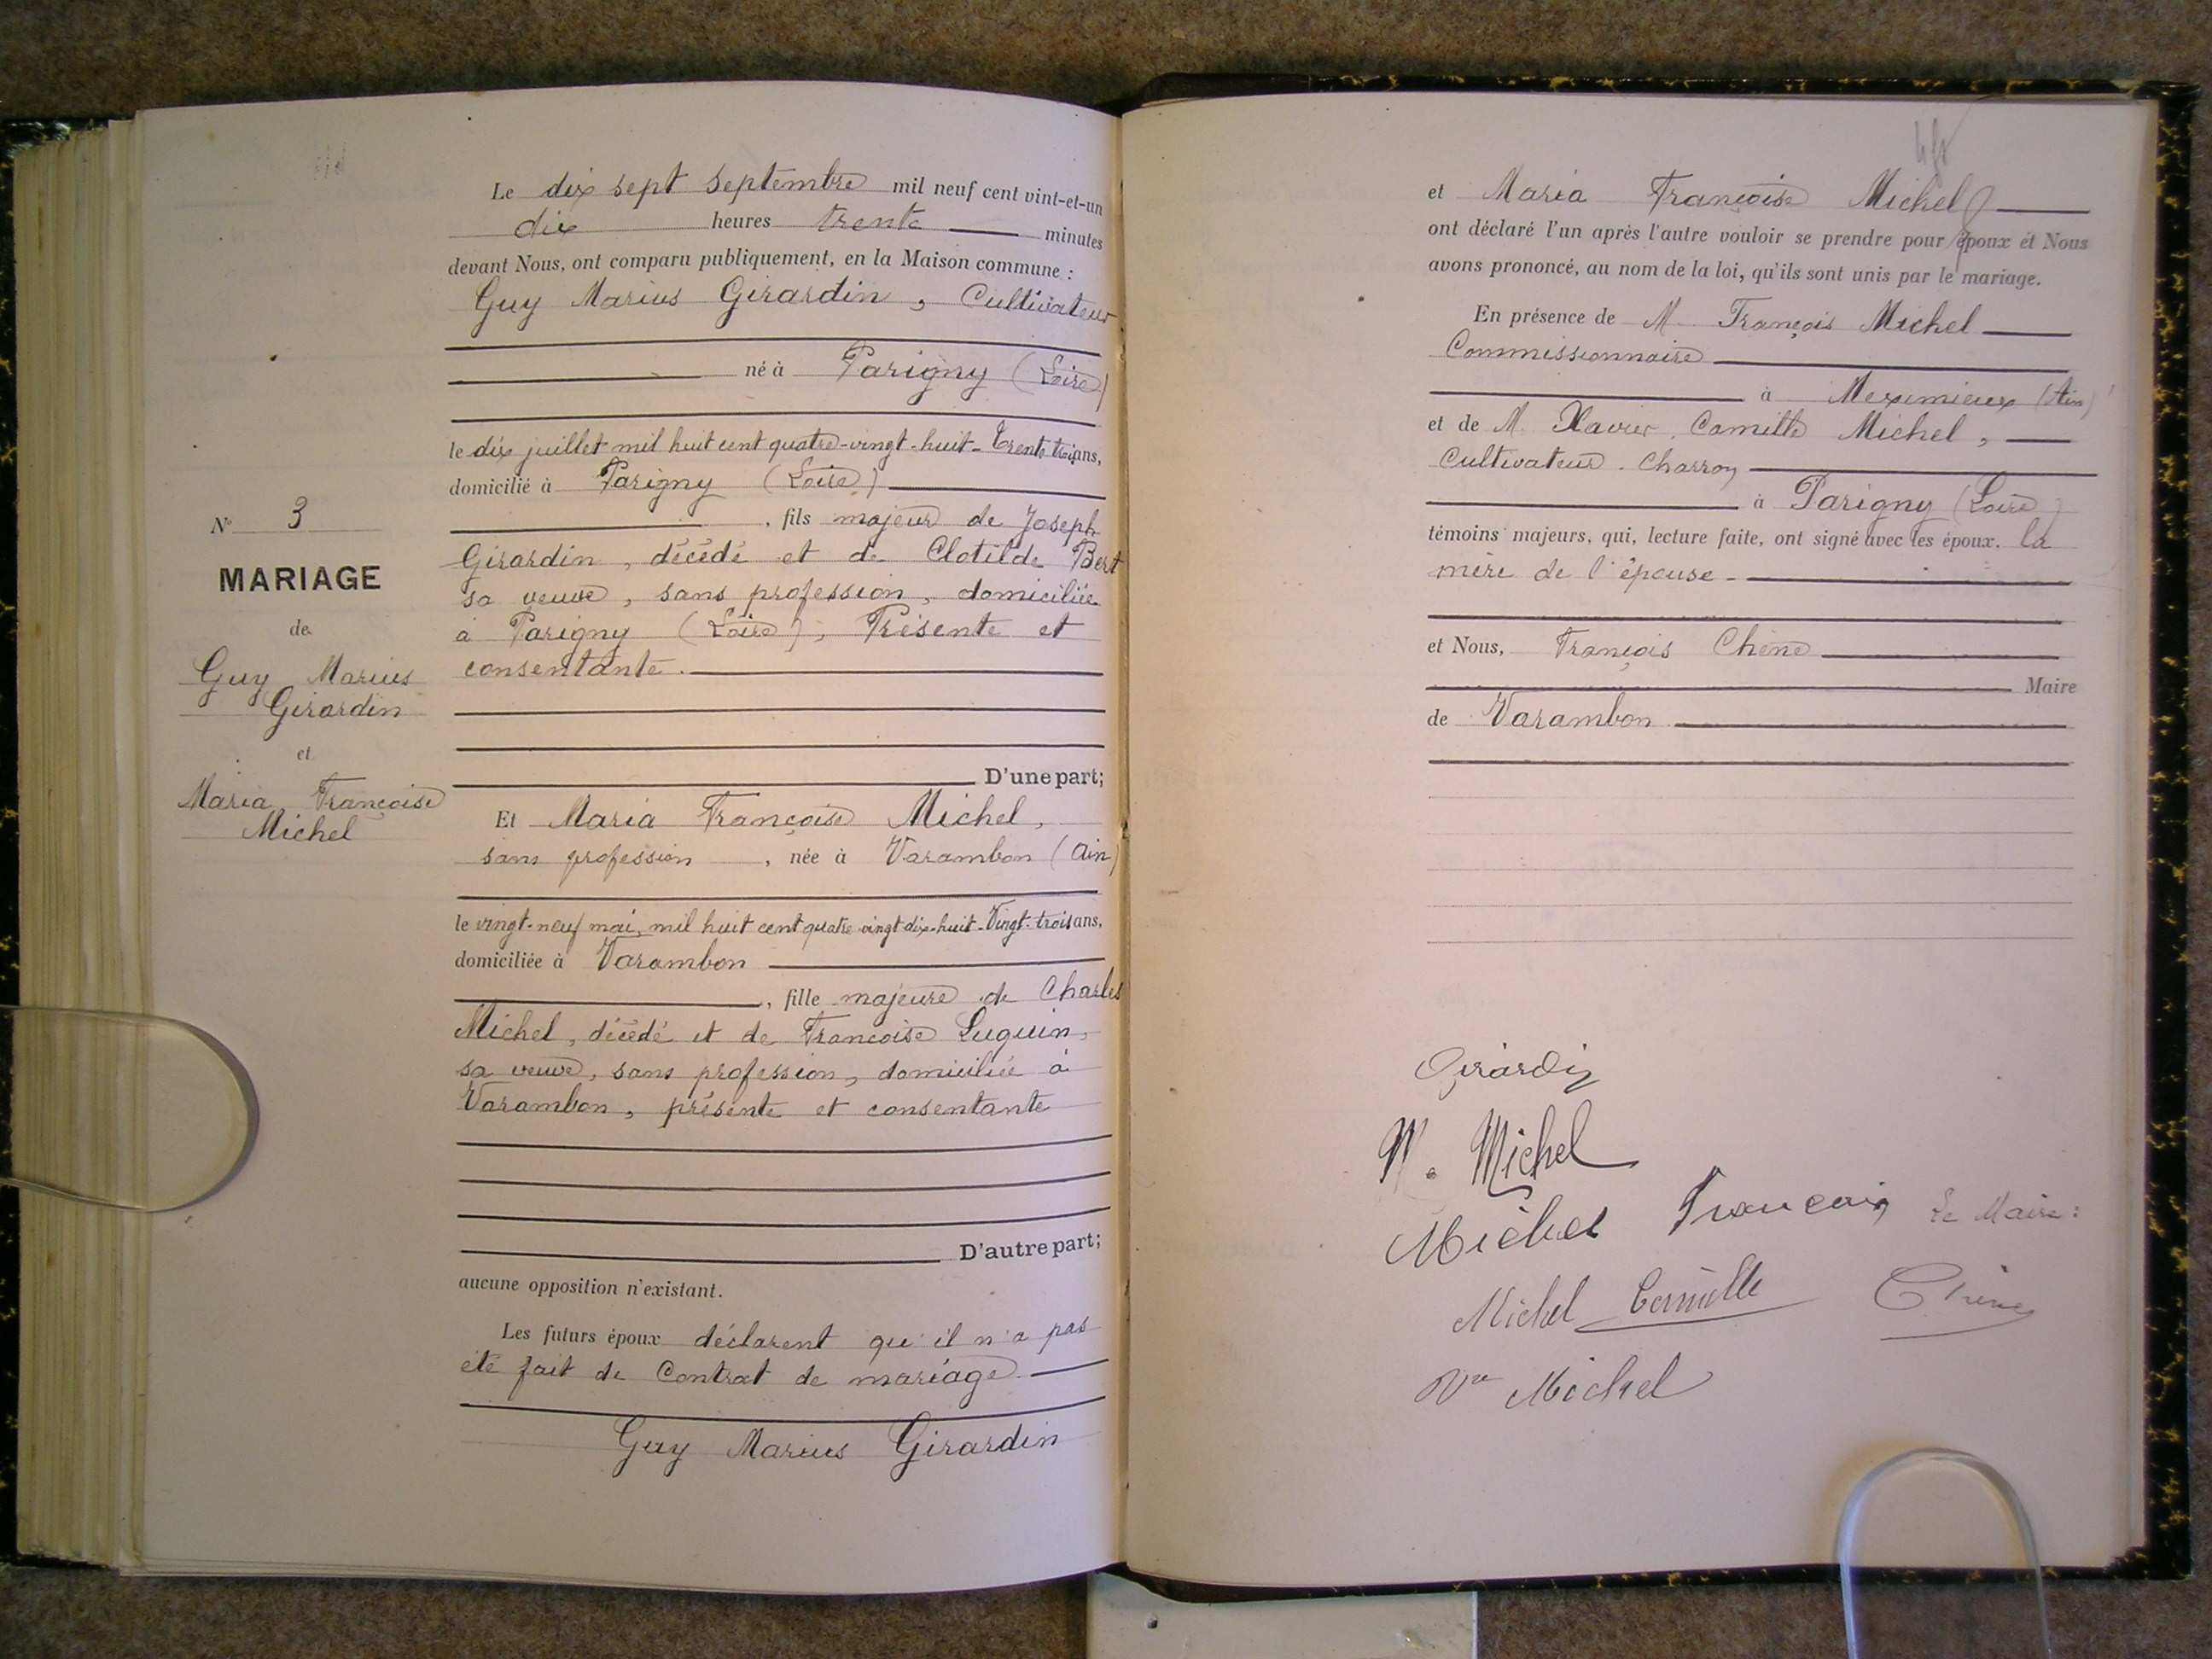 N° 3
MARIAGE
de
Guy Marius
Girardin
et
Maria Françoise
Michel
Le dix sept Septembre mil neuf cent vint-et-un
dix heures trente minutes
devant Nous, ont comparu publiquement, en la Maison commune :
Guy Marius Girardin, Cultivateur
né à Parigny (Loire)
le dix juillet mil huit cent quatre-vingt-huit - Trente trois ans,
domicilié à Parigny (Loire)
, fils majeur de Joseph
Girardin, décédé et de Clotilde Bert
sa veuve, sans profession, domiciliée
à Parigny (Loire), Présente et
consentante.
D'une part;
Et Maria Françoise Michel,
sans profession, née à Varambon (Ain)
le vingt-neuf mai, mil huit cent quatre vingt dix-huit - Vingt-trois ans,
domiciliée à Varambon
, fille majeure de Charles
Michel, décédé et de Françoise Luquin,
sa veuve, sans profession, domiciliée à
Varambon, présente et consentante
D'autre part;
aucune opposition n'existant.
Les futurs époux déclarent qu'il n'a pas
été fait de Contrat de mariage.
Guy Marius Girardin
et Maria Françoise Michel
ont déclaré l'un après l'autre vouloir se prendre pour époux et Nous
avons prononcé, au nom de la loi, qu'ils sont unis par le mariage.
En présence de M. François Michel
Commissionnaire
à Meximieux (Ain)
et de M. Xavier Camille Michel,
Cultivateur. Charron
à Parigny (Loire)
témoins majeurs, qui, lecture faite, ont signé avec les époux, la
mère de l'épouse -
et Nous, François Chêne
Maire
de Varambon
Girardin
M. Michel
Michel François
Le Maire :
Michel Camille
Chêne
Vve Michel